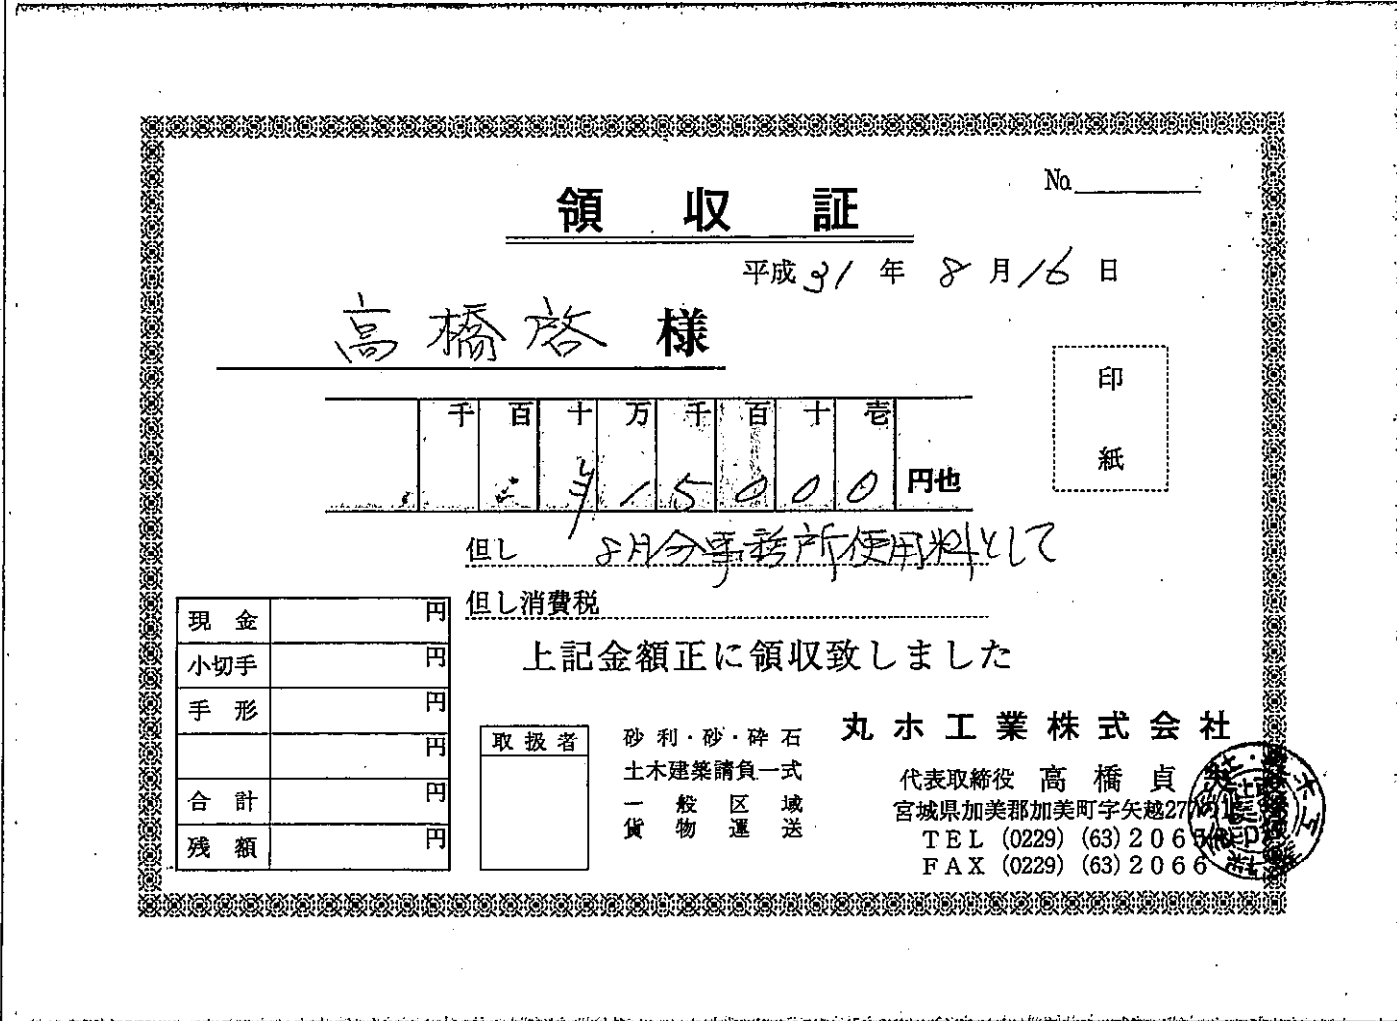 No.
領収証
平成 31 年 8 月 16 日
高橋啓 様
印紙
千 百 十 万 千 百 十 壱
¥ 1 5 0 0 0 円也
但し 8月分事務所使用料として
但し消費税
上記金額正に領収致しました
現金 円
小切手 円
手形 円
円
合計 円
残額 円
取扱者
砂利・砂・砕石
土木建築請負一式
一般区域
貨物運送
丸ホ工業株式会社
代表取締役 高橋貞
宮城県加美郡加美町字矢越27
TEL (0229) (63) 206
FAX (0229) (63) 2066